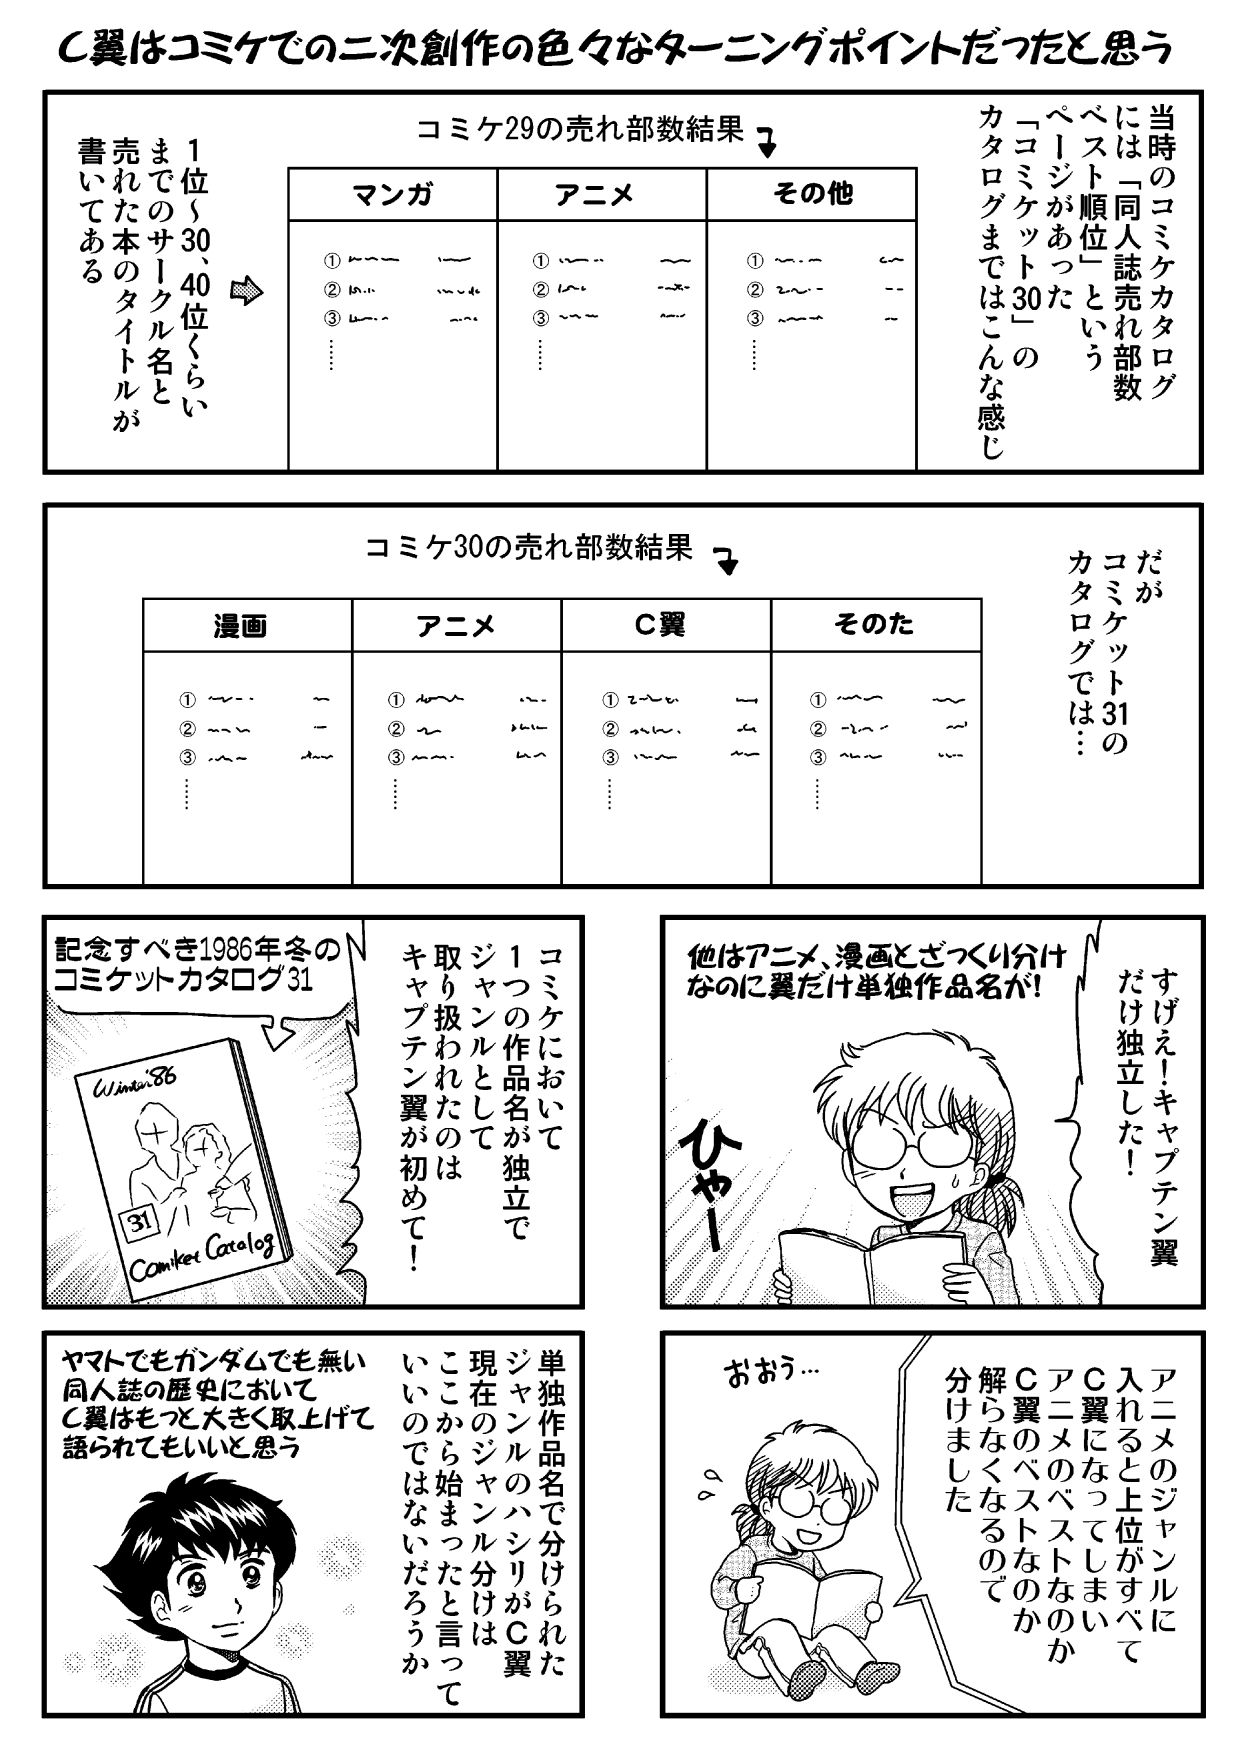 C翼はコミケでの二次創作の色々なターニングポイントだったと思う
当時のコミケカタログ
には「同人誌売れ部数
ベスト順位」という
ページがあった
「コミケット30」の
カタログまではこんな感じ
コミケ29の売れ部数結果
マンガ
アニメ
その他
①
②
③
①
②
③
①
②
③
1位～30、40位くらい
までのサークル名と
売れた本のタイトルが
書いてある
だが
コミケット31の
カタログでは…
コミケ30の売れ部数結果
漫画
アニメ
C翼
そのた
①
②
③
①
②
③
①
②
③
①
②
③
すげえ！キャプテン翼
だけ独立した！
他はアニメ、漫画とざっくり分け
なのに翼だけ単独作品名が!
ひゃー
コミケにおいて
1つの作品名が独立で
ジャンルとして
取り扱われたのは
キャプテン翼が初めて！
記念すべき1986年冬の
コミケットカタログ31
Winter'86
31
Comiket Catalog
アニメのジャンルに
入れると上位がすべて
C翼になってしまい
アニメのベストなのか
C翼のベストなのか
解らなくなるので
分けました
おおう…
単独作品名で分けられた
ジャンルのハシリがC翼
現在のジャンル分けは
ここから始まったと言って
いいのではないだろうか
ヤマトでもガンダムでも無い
同人誌の歴史において
C翼はもっと大きく取上げて
語られてもいいと思う